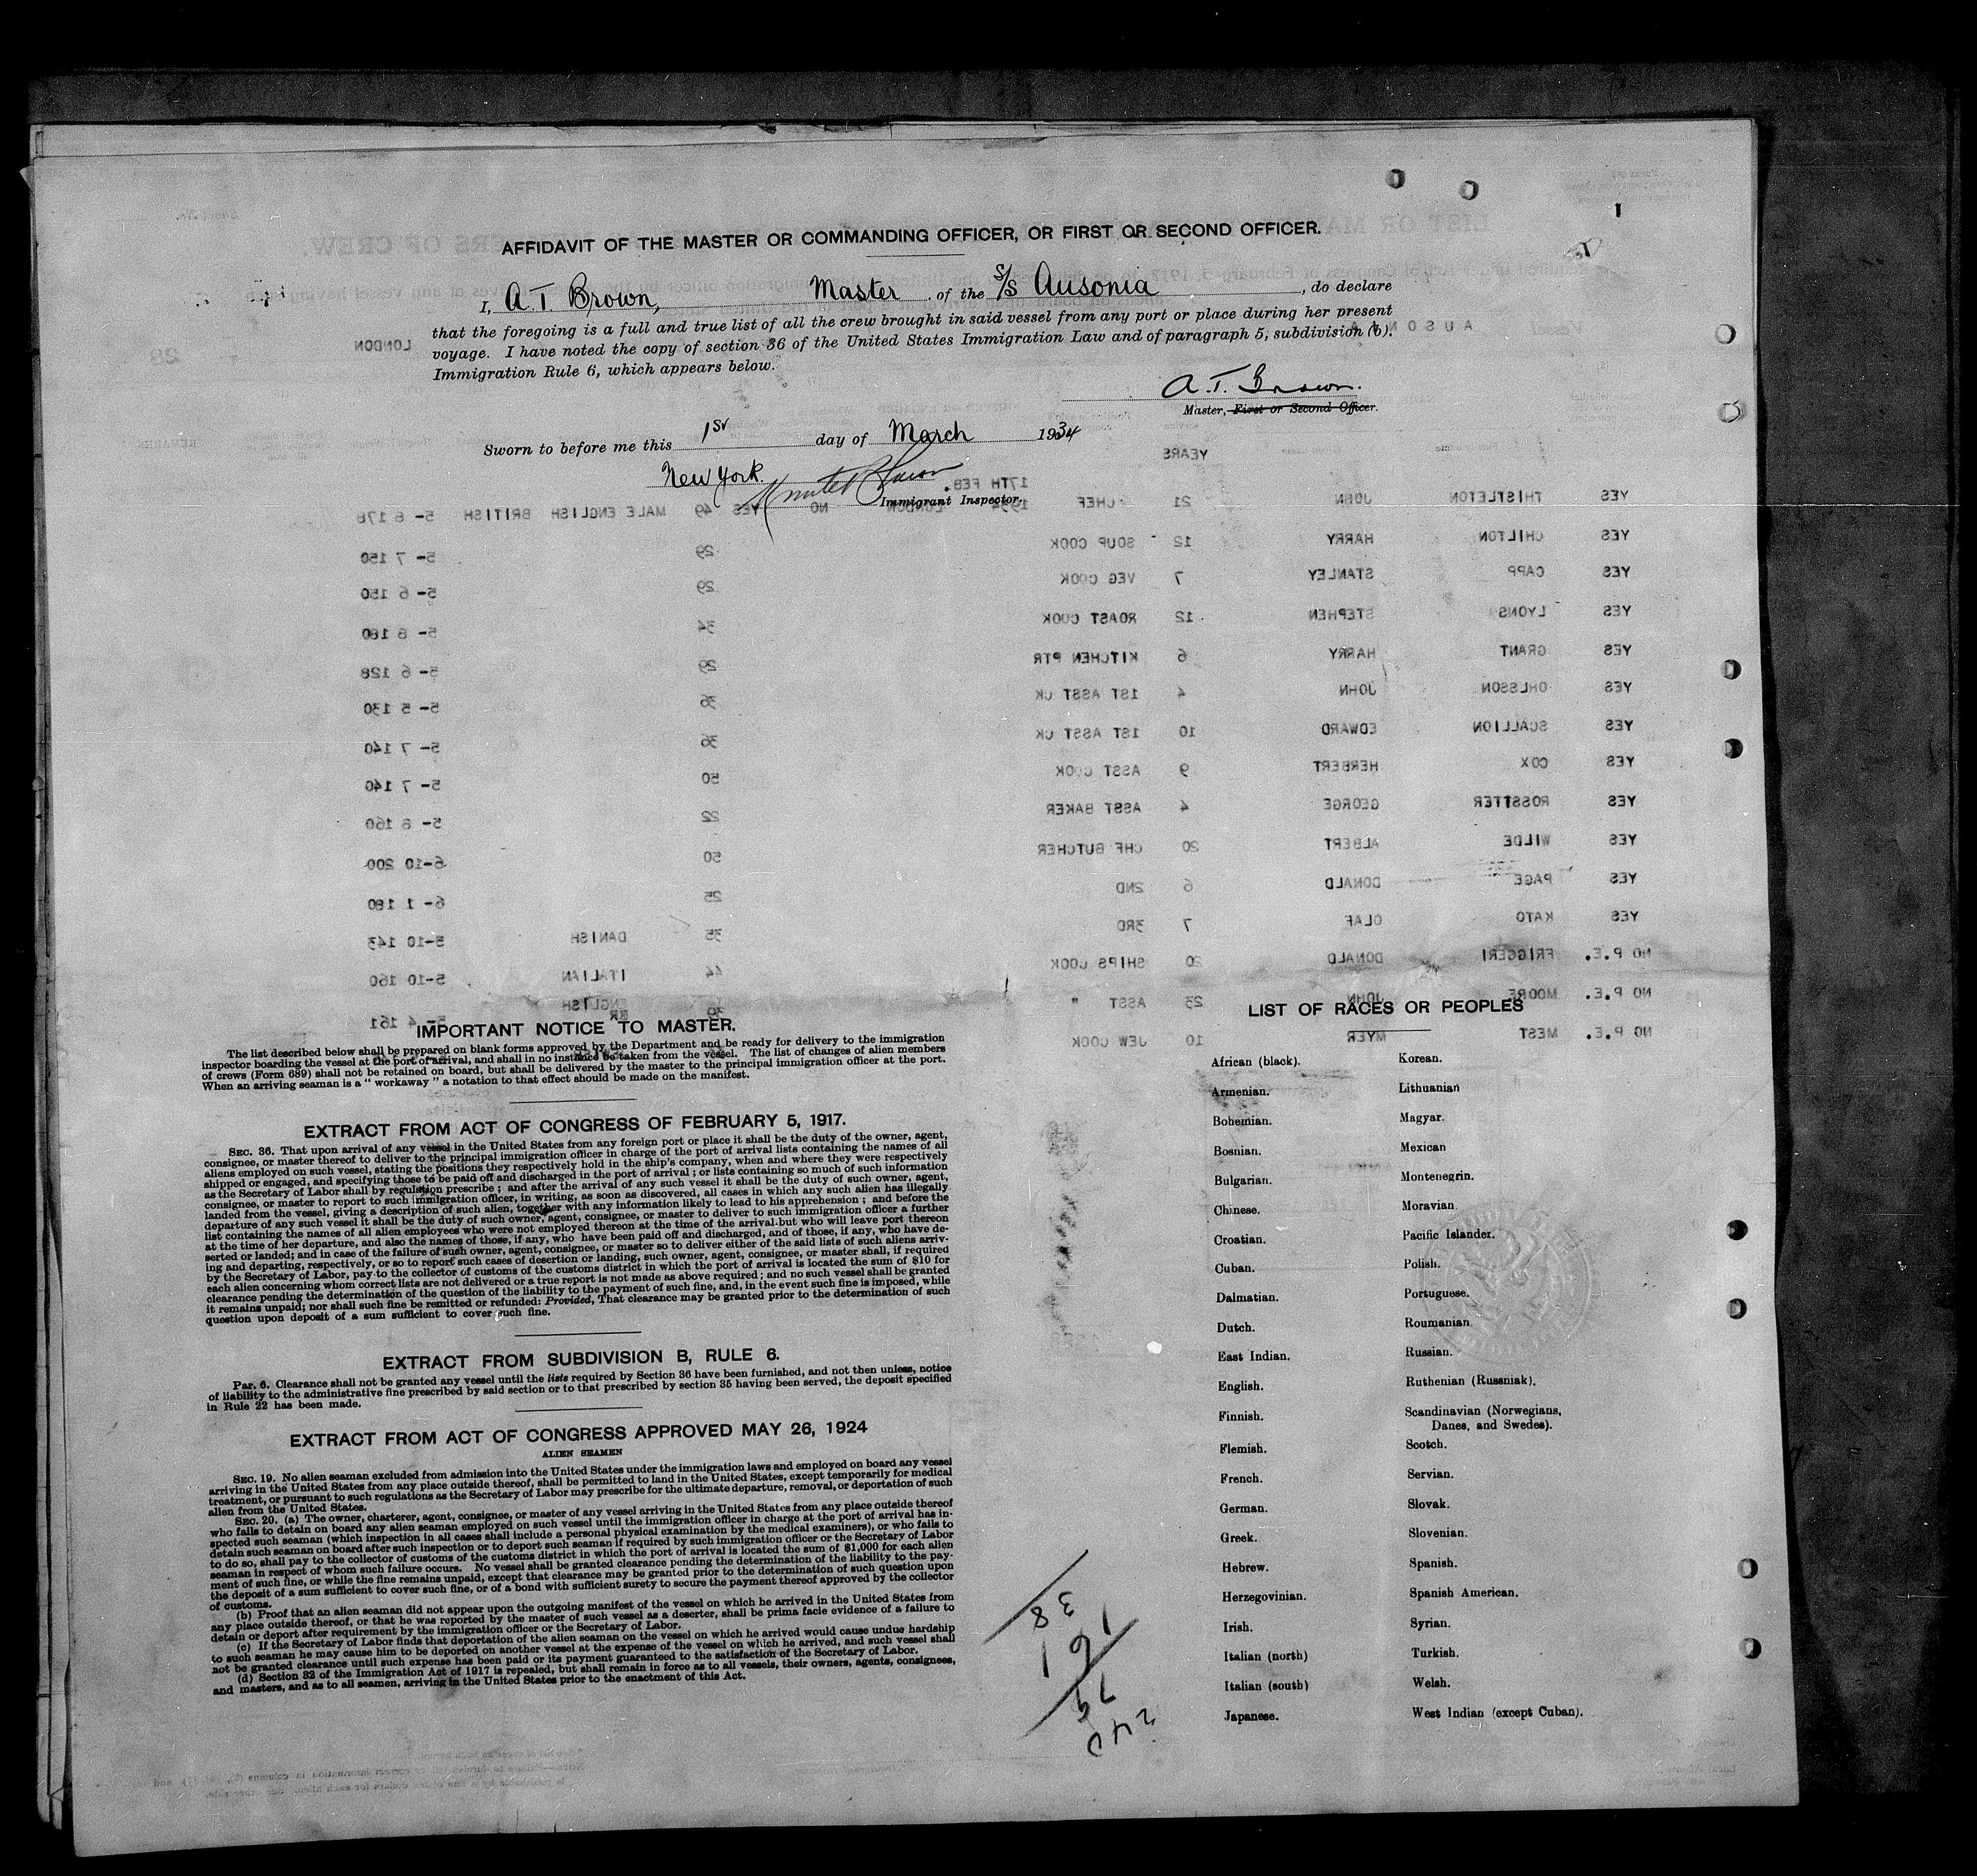 AFFIDAVIT OF THE MASTER OR COMMANDING OFFICER, OR FIRST OR SECOND OFFICER.
I, A.T. Brown, Master of the S/S Ausonia, do declare
that the foregoing is a full and true list of all the crew brought in said vessel from any port or place during her present
voyage. I have noted the copy of section 36 of the United States Immigration Law and of paragraph 5, subdivision (b).
Immigration Rule 6, which appears below.
A.T. Brown.
Master, First or Second Officer.
Sworn to before me this 1st day of March 1934
New York.
Immigrant Inspector.
YEARS
17TH FEB.
YES THISTLETON JOHN 21 CHEF 1934 LONDON NO YES 49 MALE ENGLISH BRITISH 5- 8 178
YES CHILTON HARRY 12 SOUP COOK 29 5- 7 150
YES CAPP STANLEY 7 VEG COOK 29 5- 6 150
YES LYONS STEPHEN 12 ROAST COOK 34 5- 8 180
YES GRANT HARRY 6 KITCHEN PTR 29 5- 6 128
YES OHLSSON JOHN 4 1ST ASST CK 36 5- 5 130
YES SCALLION EDWARD 10 1ST ASST CK 36 5- 7 140
YES COX HERBERT 9 ASST COOK 50 5- 7 140
YES ROSSTTER GEORGE 4 ASST BAKER 22 5- 8 160
YES WILDE ALBERT 20 CHF BUTCHER 50 6-10 200
YES PAGE DONALD 6 2ND 25 6- 1 180
YES KATO OLAF 7 3RD 35 DANISH 5-10 143
NO P.E. FRIGGERI DONALD 20 SHIPS COOK 44 ITALIAN 5-10 160
NO P.E. MOORE JOHN 23 ASST " ENGLISH 161
NO P.E. MEST MYER 10 JEW COOK
AUSONIA
LONDON
IMPORTANT NOTICE TO MASTER.
The list described below shall be prepared on blank forms approved by the Department and be ready for delivery to the immigration
inspector boarding the vessel at the port of arrival, and shall in no instance be taken from the vessel. The list of changes of alien members
of crews (Form 689) shall not be retained on board, but shall be delivered by the master to the principal immigration officer at the port.
When an arriving seaman is a " workaway " a notation to that effect should be made on the manifest.
EXTRACT FROM ACT OF CONGRESS OF FEBRUARY 5, 1917.
SEC. 36. That upon arrival of any vessel in the United States from any foreign port or place it shall be the duty of the owner, agent,
consignee, or master thereof to deliver to the principal immigration officer in charge of the port of arrival lists containing the names of all
aliens employed on such vessel, stating the positions they respectively hold in the ship's company, when and where they were respectively
shipped or engaged, and specifying those to be paid off and discharged in the port of arrival ; or lists containing so much of such information
as the Secretary of Labor shall by regulation prescribe ; and after the arrival of any such vessel it shall be the duty of such owner, agent,
consignee, or master to report to such immigration officer, in writing, as soon as discovered, all cases in which any such alien has illegally
landed from the vessel, giving a description of such alien, together with any information likely to lead to his apprehension ; and before the
departure of any such vessel it shall be the duty of such owner, agent, consignee, or master to deliver to such immigration officer a further
list containing the names of all alien employees who were not employed thereon at the time of the arrival but who will leave port thereon
at the time of her departure, and also the names of those, if any, who have been paid off and discharged, and of those, if any, who have de-
serted or landed; and in case of the failure of such owner, agent, consignee, or master so to deliver either of the said lists of such aliens arriv-
ing and departing, respectively, or so to report such cases of desertion or landing, such owner, agent, consignee, or master shall, if required
by the Secretary of Labor, pay to the collector of customs of the customs district in which the port of arrival is located the sum of $10 for
each alien concerning whom correct lists are not delivered or a true report is not made as above required ; and no such vessel shall be granted
clearance pending the determination of the question of the liability to the payment of such fine, and, in the event such fine is imposed, while
it remains unpaid; nor shall such fine be remitted or refunded: Provided, That clearance may be granted prior to the determination of such
question upon deposit of a sum sufficient to cover such fine.
EXTRACT FROM SUBDIVISION B, RULE 6.
Par. 6. Clearance shall not be granted any vessel until the lists required by Section 36 have been furnished, and not then unless, notice
of liability to the administrative fine prescribed by said section or to that prescribed by section 35 having been served, the deposit specified
in Rule 22 has been made.
EXTRACT FROM ACT OF CONGRESS APPROVED MAY 26, 1924
ALIEN SEAMEN
SEC. 19. No alien seaman excluded from admission into the United States under the immigration laws and employed on board any vessel
arriving in the United States from any place outside thereof, shall be permitted to land in the United States, except temporarily for medical
treatment, or pursuant to such regulations as the Secretary of Labor may prescribe for the ultimate departure, removal, or deportation of such
alien from the United States.
SEC. 20. (a) The owner, charterer, agent, consignee, or master of any vessel arriving in the United States from any place outside thereof
who fails to detain on board any alien seaman employed on such vessel until the immigration officer in charge at the port of arrival has in-
spected such seaman (which inspection in all cases shall include a personal physical examination by the medical examiners), or who fails to
detain such seaman on board after such inspection or to deport such seaman if required by such immigration officer or the Secretary of Labor
to do so, shall pay to the collector of customs of the customs district in which the port of arrival is located the sum of $1,000 for each alien
seaman in respect of whom such failure occurs. No vessel shall be granted clearance pending the determination of the liability to the pay-
ment of such fine, or while the fine remains unpaid, except that clearance may be granted prior to the determination of such question upon
the deposit of a sum sufficient to cover such fine, or of a bond with sufficient surety to secure the payment thereof approved by the collector
of customs.
(b) Proof that an alien seaman did not appear upon the outgoing manifest of the vessel on which he arrived in the United States from
any place outside thereof, or that he was reported by the master of such vessel as a deserter, shall be prima facie evidence of a failure to
detain or deport after requirement by the immigration officer or the Secretary of Labor.
(c) If the Secretary of Labor finds that deportation of the alien seaman on the vessel on which he arrived would cause undue hardship
to such seaman he may cause him to be deported on another vessel at the expense of the vessel on which he arrived, and such vessel shall
not be granted clearance until such expense has been paid or its payment guaranteed to the satisfaction of the Secretary of Labor.
(d) Section 32 of the Immigration Act of 1917 is repealed, but shall remain in force as to all vessels, their owners, agents, consignees,
and masters, and as to all seamen, arriving in the United States prior to the enactment of this Act.
LIST OF RACES OR PEOPLES
African (black). Korean.
Armenian. Lithuanian
Bohemian. Magyar.
Bosnian. Mexican
Bulgarian. Montenegrin.
Chinese. Moravian
Croatian. Pacific Islander.
Cuban. Polish.
Dalmatian. Portuguese.
Dutch. Roumanian
East Indian. Russian.
English. Ruthenian (Russniak).
Finnish. Scandinavian (Norwegians,
Danes, and Swedes).
Flemish. Scotch.
French. Servian.
German. Slovak.
Greek. Slovenian.
Hebrew. Spanish.
Herzegovinian. Spanish American.
Irish. Syrian.
Italian (north) Turkish.
Italian (south) Welsh.
Japanese. West Indian (except Cuban).